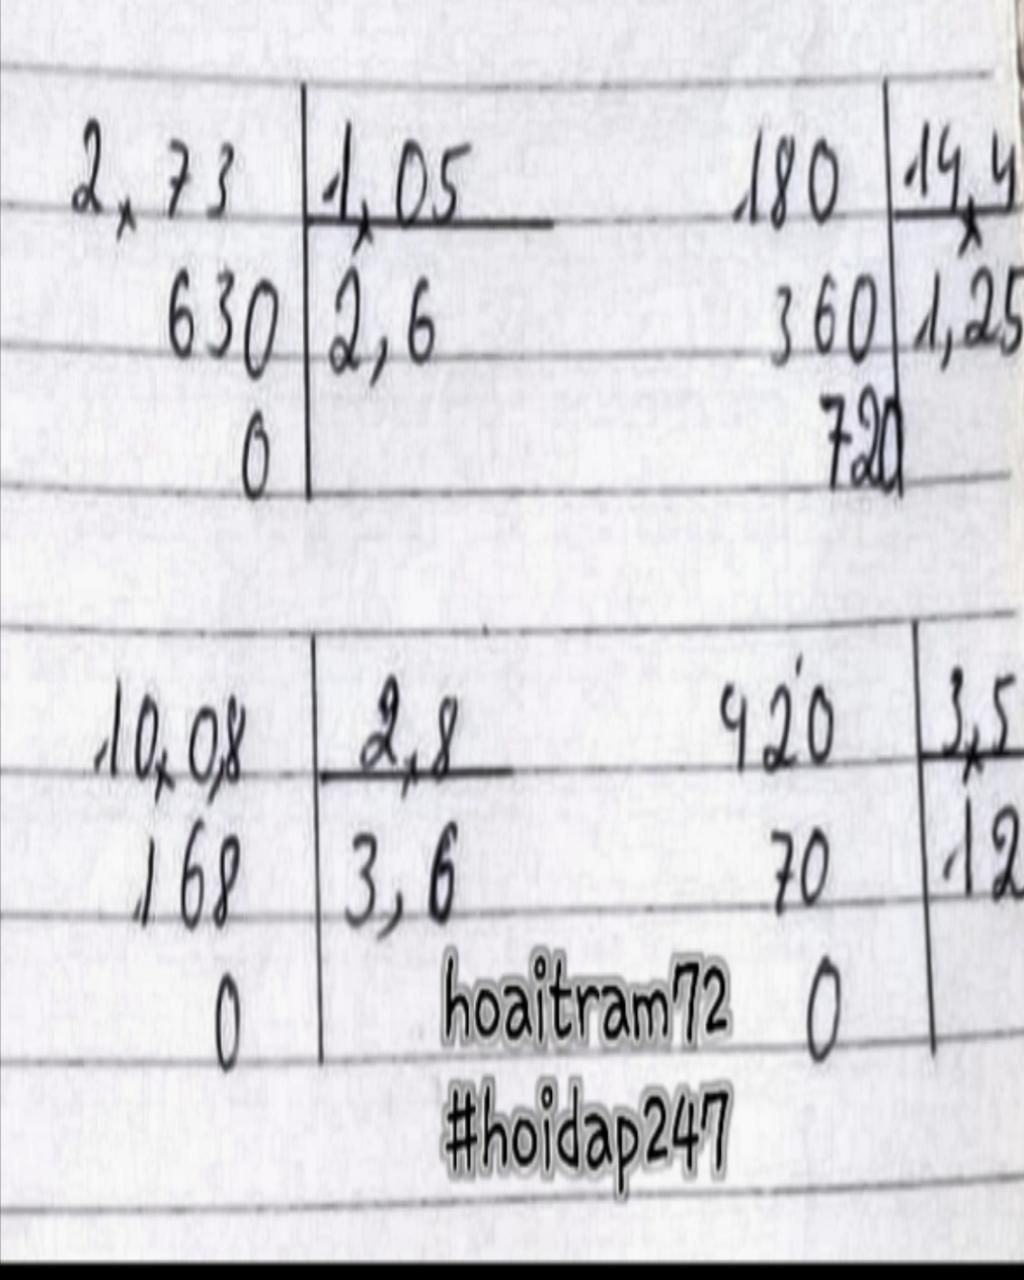 2,73 1,05
630 2,6
0
180 14,4
360 1,25
720
10,0,8 2,8
168 3,6
0
420 3,5
70 12
0
hoaitram72
#hoidap247